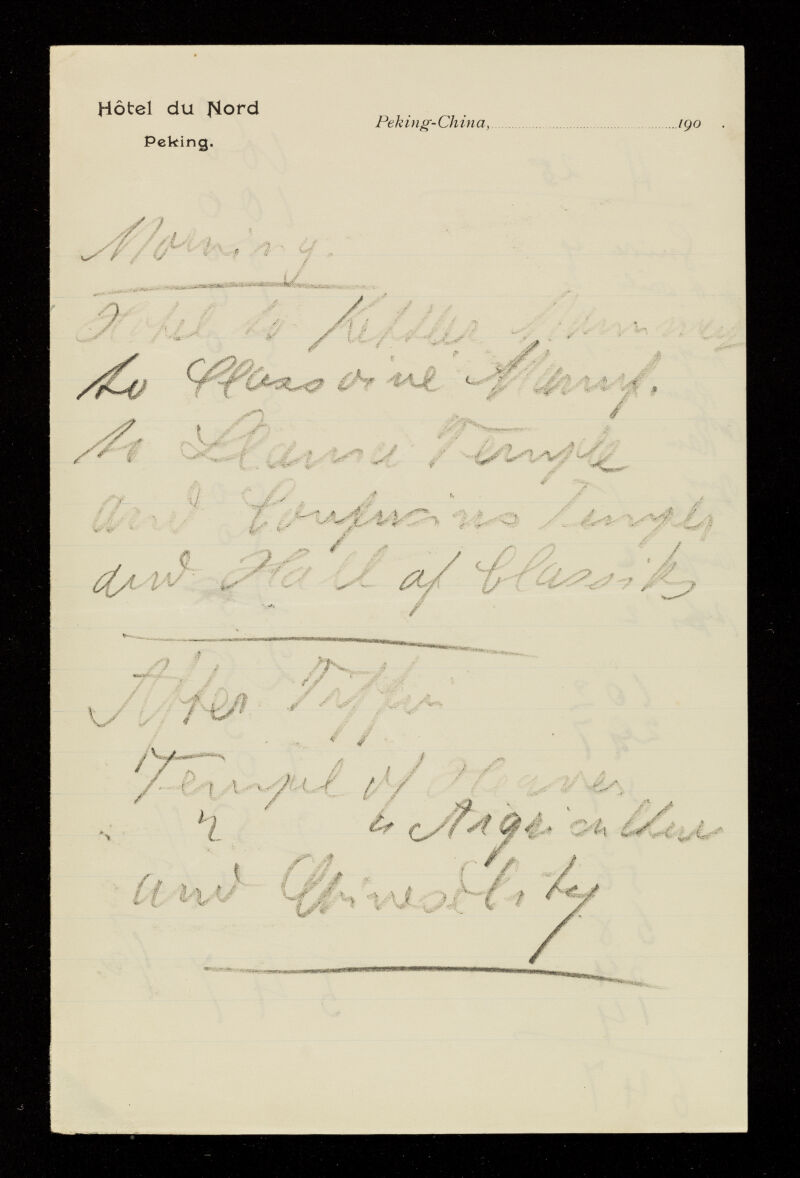 Hôtel du Nord
Peking.
Peking-China, 190 .
Morning.
Hotel to Kettler
to Cloassoiné Manuf.
to Llama Temple
and Confucius Tempel
and Hall of Classiks
After Tiffin
Tempel of Heaven
" " Argriculture
and Chinese City